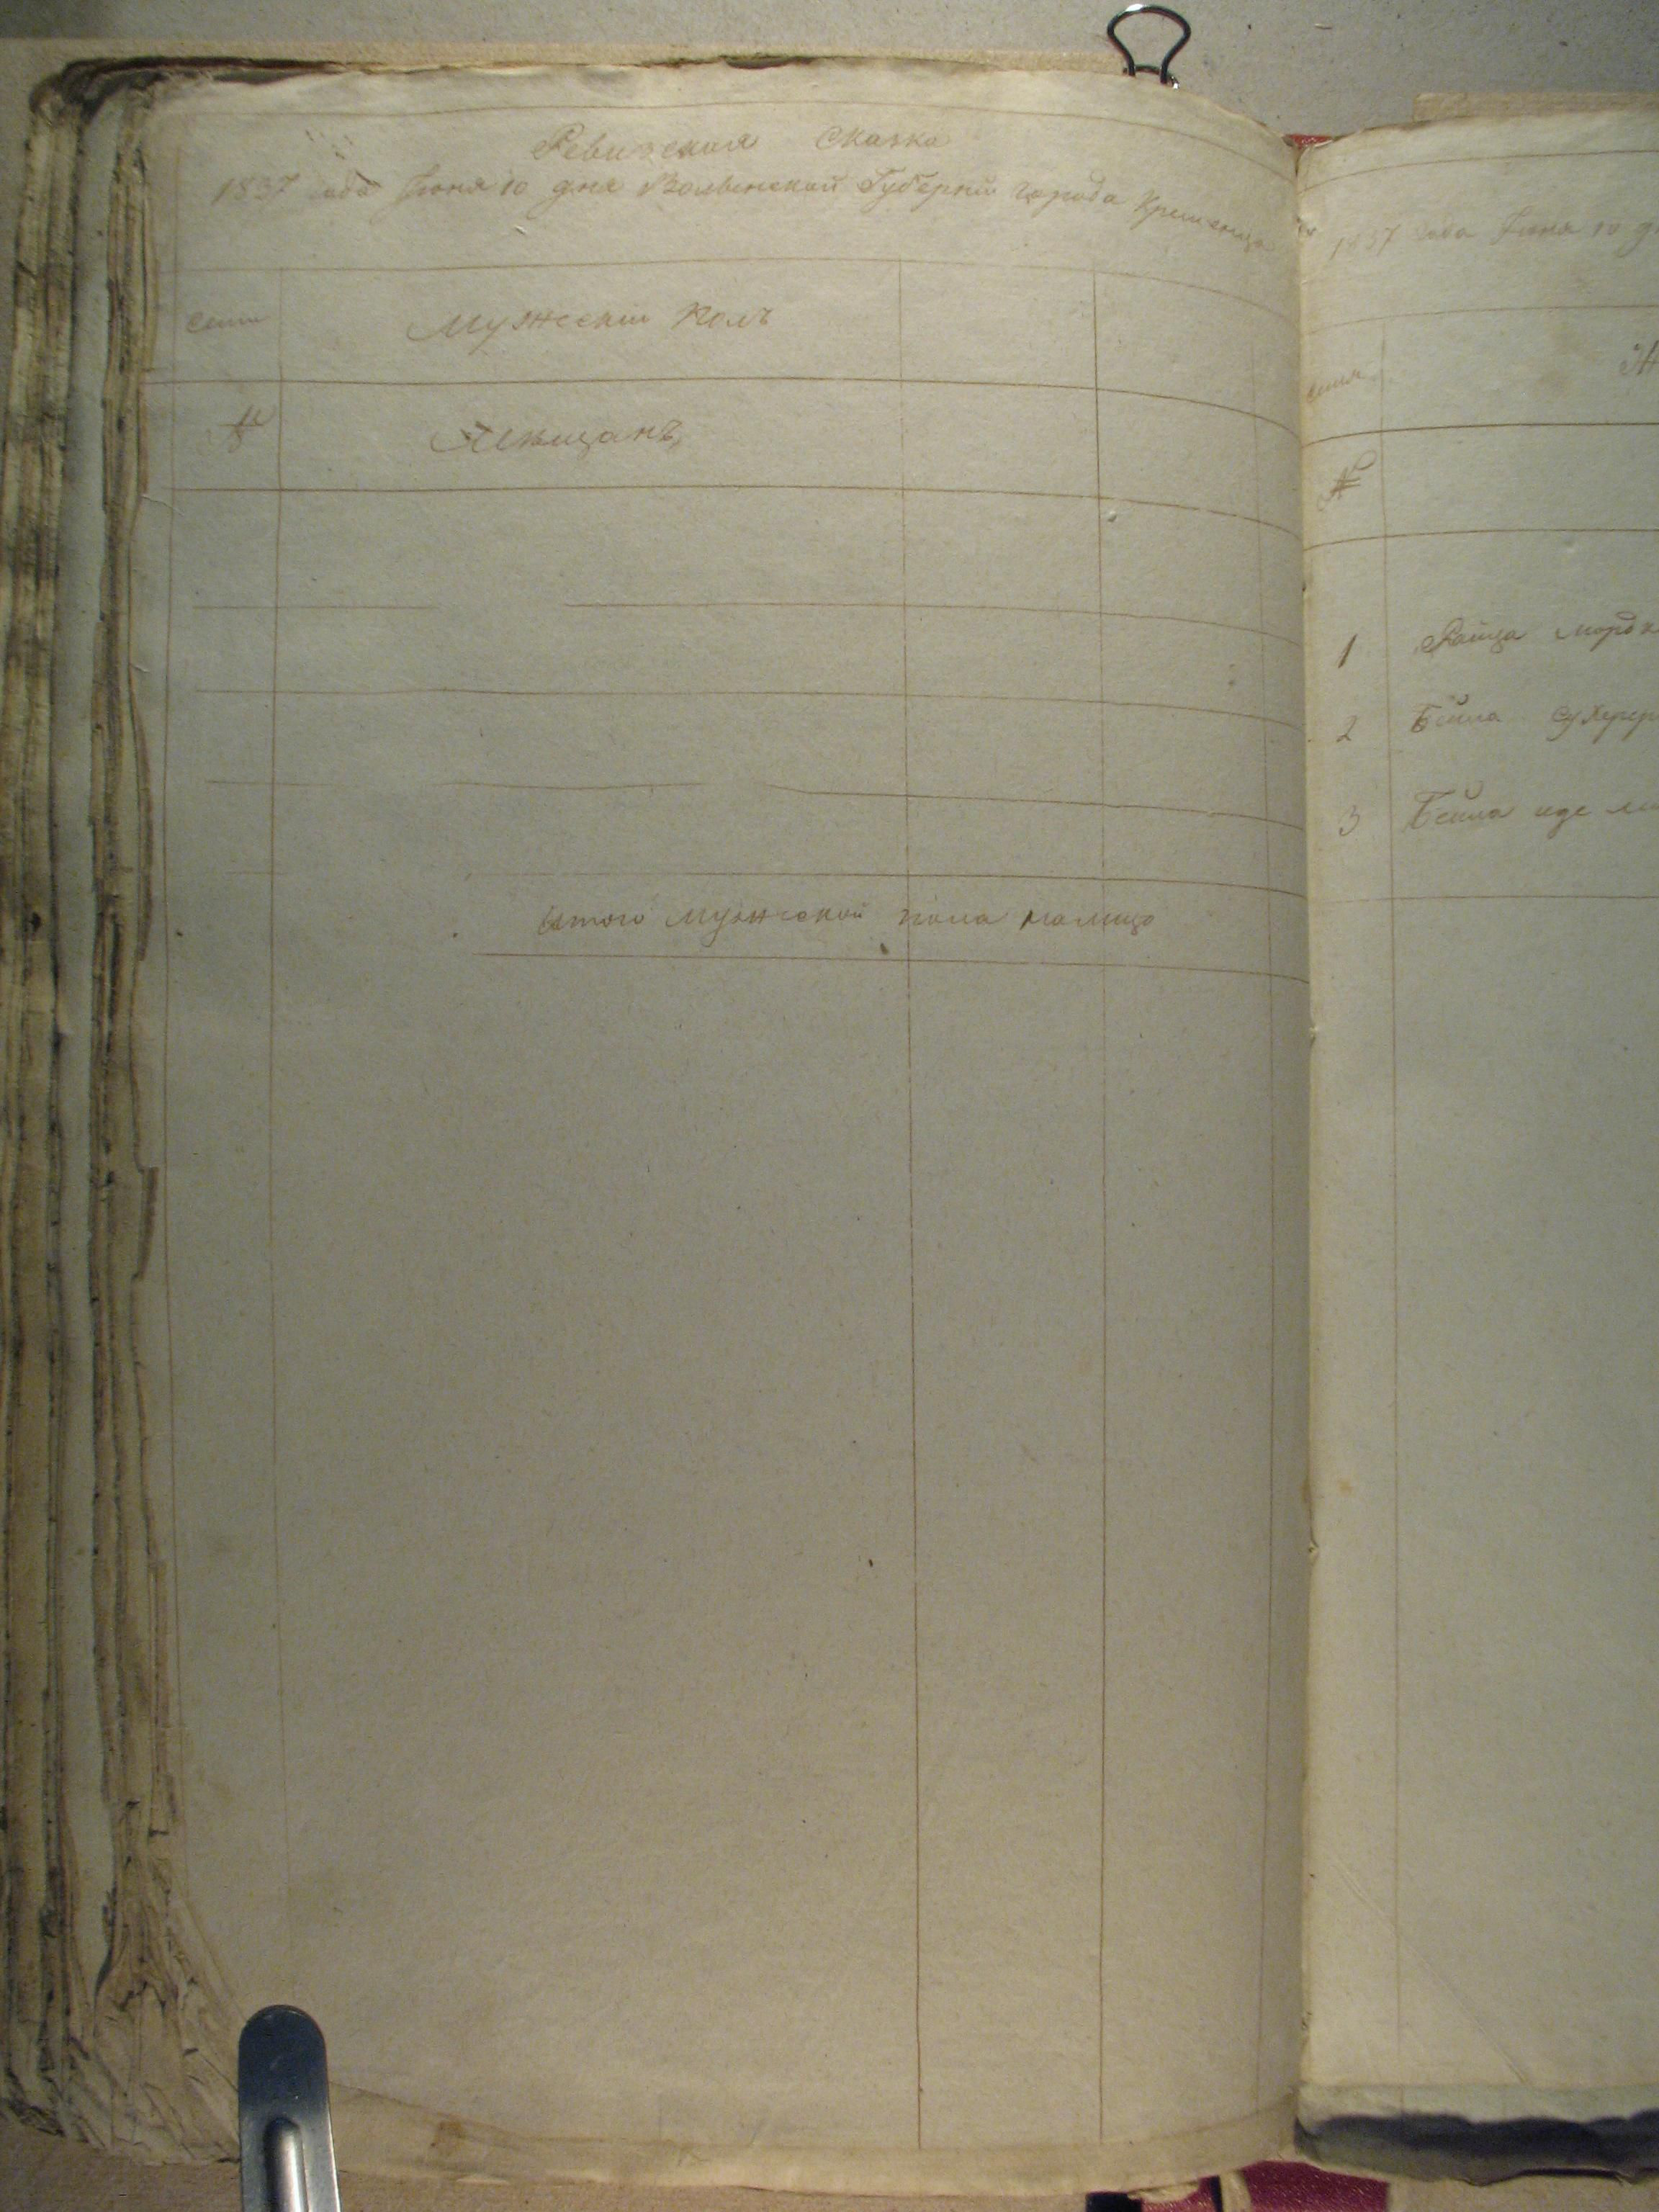 Ревизская Сказка
1837 года Іюня 10 дня Волынской Губерніи города Кременца
семи Мужескій Полъ
№ Мещанъ
Итого Мужеской пола налицо
1837 года Іюня 10
семи
№
1 Раица
2 Бейла
3 Бейла